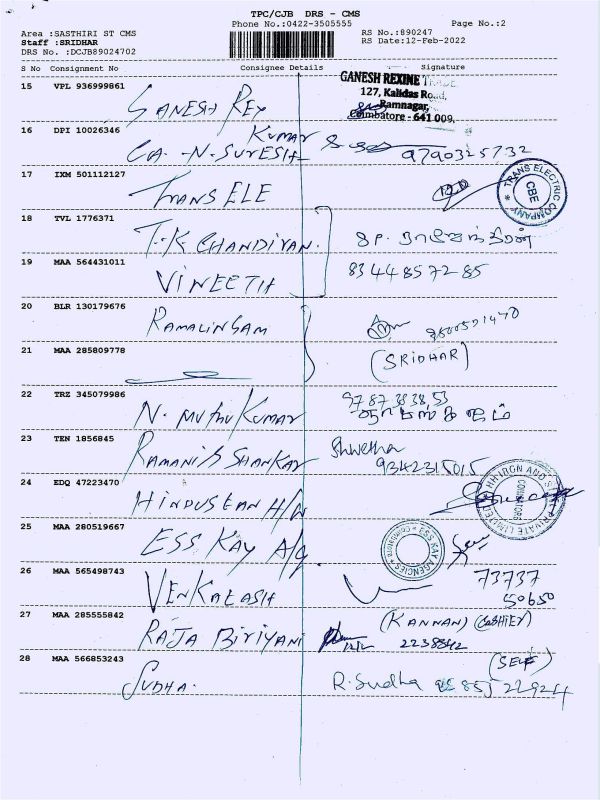 TPC/CJB DRS - CMS
Phone No.:0422-3505555
Page No.:2
Area :SASTHIRI ST CMS
RS No.:890247
Staff :SRIDHAR
RS Date:12-Feb-2022
DRS No. :DCJB89024702
S No Consignment No Consignee Details Signature
15 VPL 936999861
GANESH REXINE TRADE
127, Kalidas Road,
Ramnagar,
Coimbatore - 641 009.
GANESH REX
16 DPI 10026346
KUMAR
CA. -N. SURESH
9790325732
17 IXM 501112127
TRANS ELE
TRANS ELECTRIC COMPANY * CBE
18 TVL 1776371
T.K CHANDIRAN.
19 MAA 564431011
VINEETH
83448572 85
20 BLR 130179676
RAMALINGAM
21 MAA 285809778
(SRIDHAR)
22 TRZ 345079986
N. MUTHU KUMAR
9787 38 38 53
23 TEN 1856845
RAMANISHANKAR
Shwetha
9342315015
24 EDQ 47223470
HINDUSTAN H/W
25 MAA 280519667
ESS KAY A/G
ESS KAY AGENCIES * COIMBATORE *
26 MAA 565498743
VENKATASH
73737
50650
27 MAA 285555842
RAJA BIRIYANI
(KANNAN) (CASHIER)
2238842
28 MAA 566853243
(SELF)
SUDHA.
R. Sudha